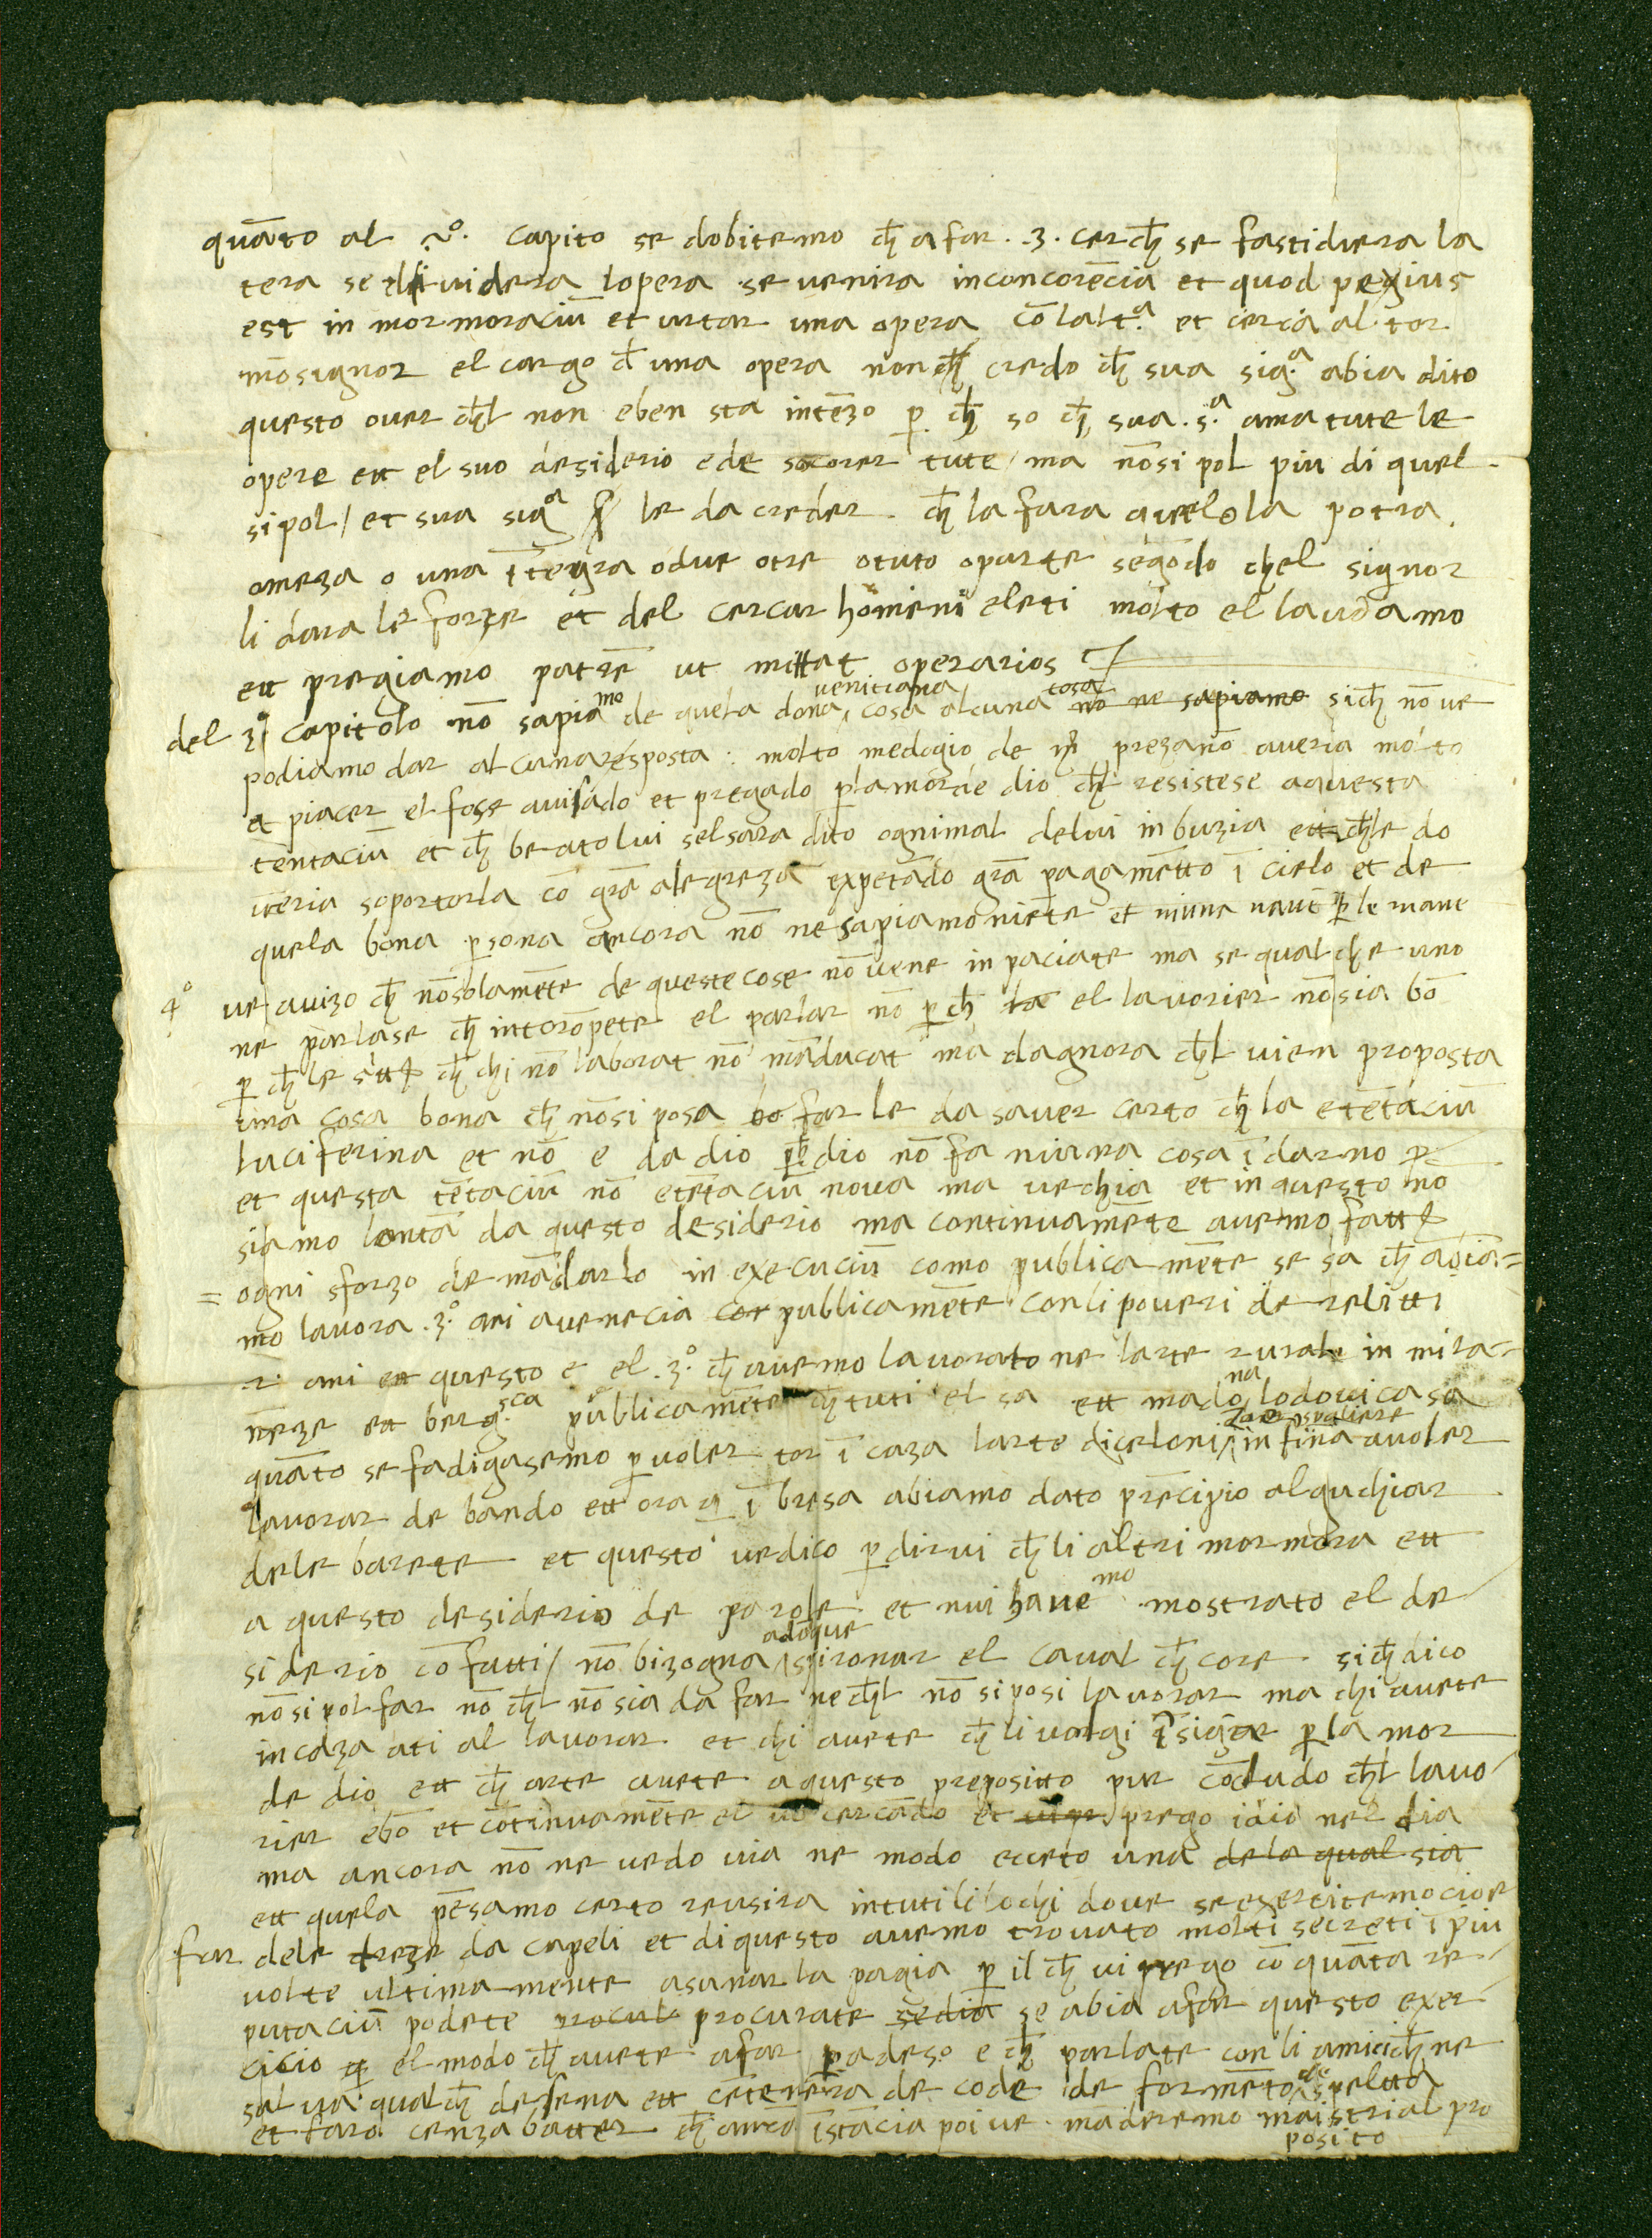 quāto al 2º. capito se dobitemo ch̄ a far .3. cerch̄ se fastidiera la
tera se dividera lopera se venira in concorēcia et quod pegius
est in mormoraciū et urtar una opera cō laltª et cerca al tor
mōsignor el cargo d̄ una opera non credo ch̄ sua sigª abia dito
questo over ch̄l non eben sta intēzo p̄ ch̄ so ch̄ sua .s.ª ama tute le
opere ett el suo desiderio ede socorer tute / ma nōsi pol piu di quel
si pol / et sua sigª le da creder ch̄ la fara quelo la potra
o meza o una ītegra o due o tre o tuto o parte segōdo chel signor
li dara le forze et del cercar homeni eleti molto el laudamo
ett pregiamo patrē ut mittat operarios
del 3º capitolo nō sapiamo de quela dona venitiana cosa alcuna no ne sapiamo sich̄ nō ve
podiamo dar alcuna resposta. molto medogio de prezano averia molto
a piacer el fose avisado et pregado p̄ lamor de dio ch̄l resistese a questa
tentaciū et ch̄ beato lui sel sara dito ogni mal de lui in buzia ett ch̄le do
veria soportarla cō grā alegreza expetādo grā pagamētto ī cielo et de
quela bona p̄sona ancora nō ne sapiamo niēte et niuna p̄ le mane
4º ve avizo ch̄ nōsolamēte de queste cose nō vene inpaciate ma se qualche uno
ne parlase ch̄ intorōpete el parlar nō p̄ch̄ la el lavorier nōsia bō
p̄ ch̄ le ch̄ chi nō laborat nō māducat ma dagnora ch̄l vien proposta
una cosa bona ch̄ nōsi posa bo far le da saver certo ch̄ la e tētaciū
luciferina et nō e da dio p̄ch̄ dio nō fa niuna cosa ī darno
et questa tētaciū nō e tētaciū nova ma vechia et in questo no
siamo lontā da questo desiderio ma continuamēte avemo fatt
= ogni sforzo de mādarlo in execuciū como publicamēte se sa ch̄ abia=
mo lavora .3. ani a venecia cor publicamēte con li poveri derelitti
2 ani ett questo e el .3º. ch̄ avemo lavorato ne larte rurale in mila=
neze ett bergsca publicamēte ch̄ tuti el sa ett madona lodovica sa
quāto se fadigasemo p̄ voler tor ī caza larte diceloni in fina a voler
lavorar de bando ett ora q̄ ī bresa abiamo dato prēcipio al guchiar
dele barete et questo ve dico p̄ dirvi ch̄ li altri mormora ett
a questo desiderio de parole et nui havemo mostrato el de
siderio cō fatti / nō bizogna adōque spironar el caval ch̄ core sich̄ dico
nō si pol far nō ch̄l nō sia da far ne ch̄l nō si posi lavorar ma chi avete
in caza ati al lavorar et chi avete ch̄ li volgi īsigar p̄ lamor
de dio ett ch̄ arte avete a questo preposito pur cōcludo ch̄l lavo
rier e bō et cōtinuamēte el vo cercādo et prego idio nel dia
ma ancora nō ne vedo via ne modo eceto una de la qual sia
ett quela pēsamo certo reusira in tuti li lochi dove se exercitemo cioe
far dele treze da capeli et di questo avemo trovato molti secreti ī piu
volte ultimamente asunar la pagia p̄ il ch̄ vi prego cō quāta re
putaciū podete procurate se abia a far questo exer
cicio el modo ch̄ avete a far p̄ adeso e ch̄ parlate con li amici ch̄ ne
salva qualch̄ desena ett cētenera de code de formēto de spelta
et faro cenza batter ch̄ īstācia poi ve māderemo maistri al pro
posito